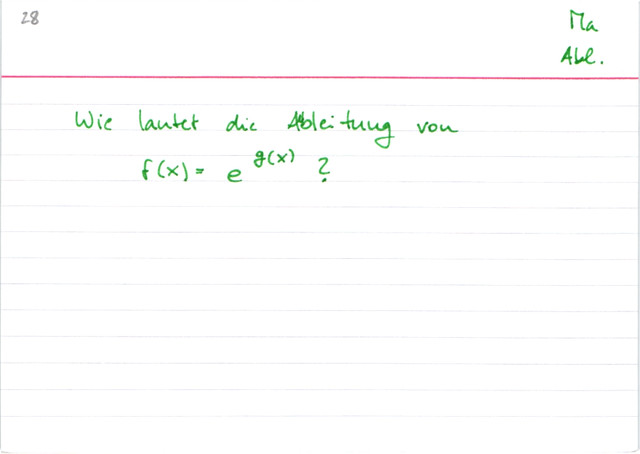 28
Ma
Abl.
Wie lautet die Ableitung von
f(x) = e^g(x) ?